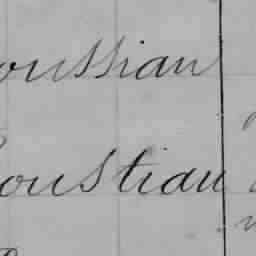 oussian
oustian